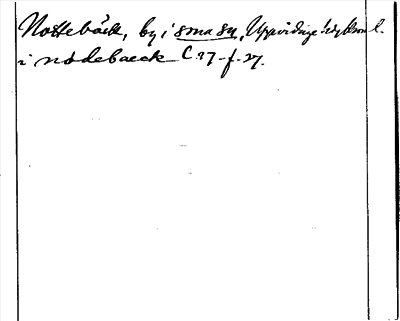 Nottebäck, by i smasn, Uppvidinge hd, Kron l.
i nodebaeck C 27 f. 27.